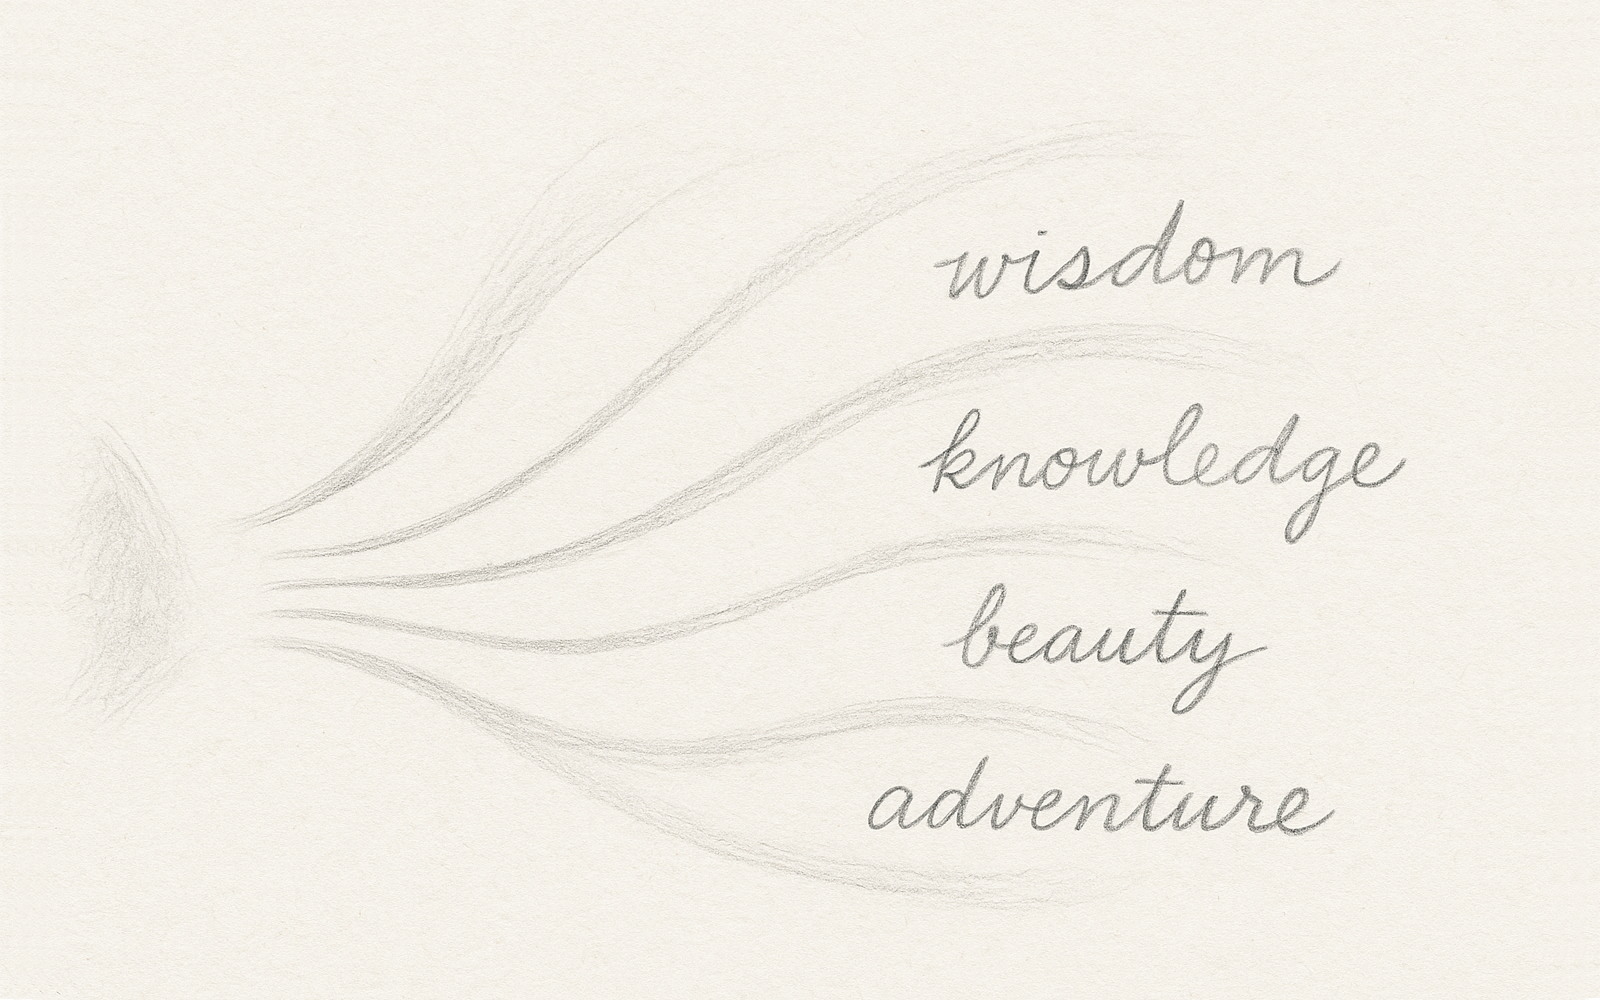 wisdom
knowledge
beauty
adventure